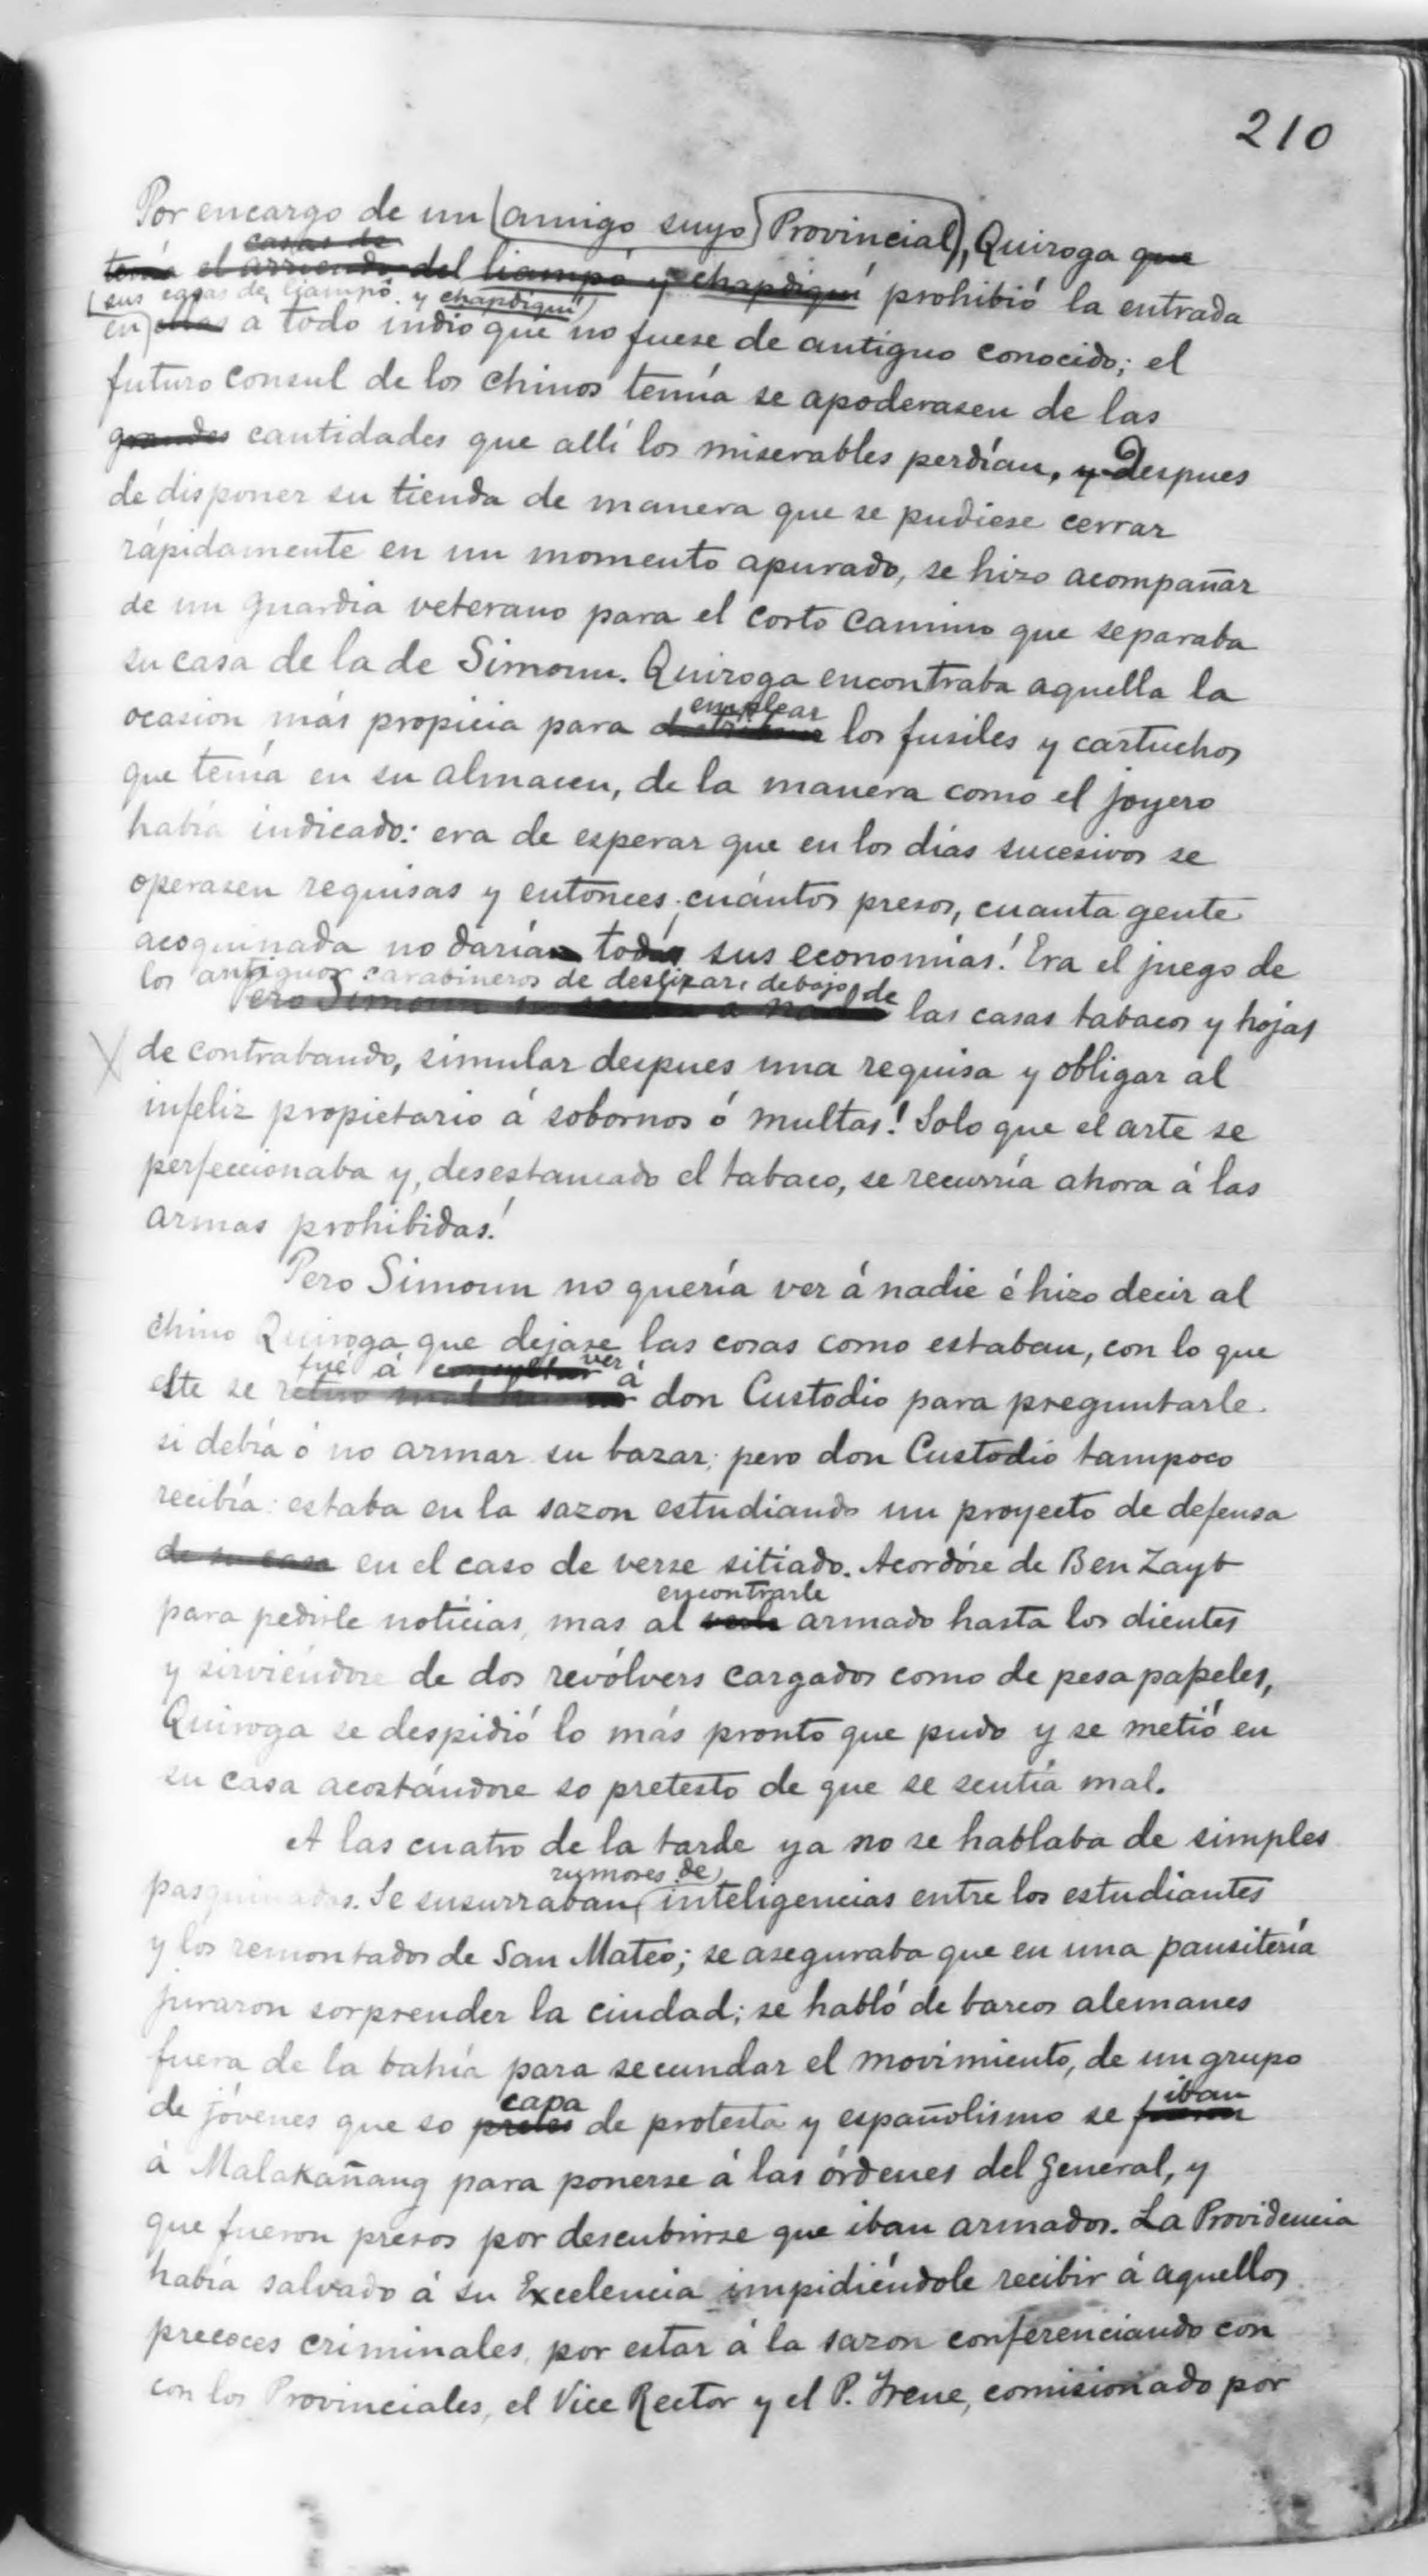 210
Por encargo de un (amigo suyo) Provincial), Quiroga que
casas de
tenía el arriendo del liampó y chapdiquí prohibió la entrada
sus casas de liampó y chapdiquí
en ellas a todo indio que no fuese de antiguo conocido; el
futuro consul de los chinos temía se apoderasen de las
grandes cantidades que allí los miserables perdían, y Despues
de disponer su tienda de manera que se pudiese cerrar
rápidamente en un momento apurado, se hizo acompañar
de un guardia veterano para el corto camino que separaba
su casa de la de Simoun. Quiroga encontraba aquella la
emplear
ocasion más propicia para distribuir los fusiles y cartuchos
que tenía en su almacen, de la manera como el joyero
había indicado: era de esperar que en los días sucesivos se
operasen requisas y entonces ¡cuántos presos, cuanta gente
acoquinada no darían todas sus economías! Era el juego de
los antiguos carabineros de deslizar, debajo de
Pero Simoun no a nadie las casas tabacos y hojas
X de contrabando, simular despues una requisa y obligar al
infeliz propietario á sobornos ó multas! Solo que el arte se
perfeccionaba y, desestancado el tabaco, se recurría ahora á las
armas prohibidas!
Pero Simoun no quería ver á nadie é hizo decir al
chino Quiroga que dejase las cosas como estaban, con lo que
fué á consultar ver á
este se retiro mal don Custodio para preguntarle
si debía ó no armar su bazar; pero don Custodio tampoco
recibía: estaba en la sazon estudiando un proyecto de defensa
de su casa en el caso de verse sitiado. Acordóse de Ben Zayb
encontrarle
para pedirle noticias, mas al verle armado hasta los dientes
y sirviéndose de dos revólvers cargados como de pesa papeles,
Quiroga se despidió lo más pronto que pudo y se metió en
su casa acostándose so pretesto de que se sentía mal.
A las cuatro de la tarde ya no se hablaba de simples
rumores de
pasquinadas. Se susurraban inteligencias entre los estudiantes
y los remontados de San Mateo; se aseguraba que en una pansitería
juraron sorprender la ciudad; se habló de barcos alemanes
fuera de la bahía para secundar el movimiento, de un grupo
capa iban
de jóvenes que so pretes de protesta y españolismo se fueron
á Malakañang para ponerse á las órdenes del General, y
que fueron presos por descubrirse que iban armados. La Providencia
había salvado á su Excelencia impidiéndole recibir á aquellos
precoces criminales, por estar á la sazon conferenciando con
con los Provinciales, el Vice Rector y el P. Irene, comisionado por